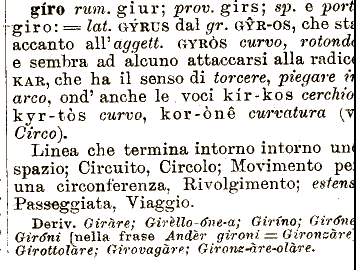 gíro rum. giur; prov. girs; sp. e port
giro: = lat. GȲRUS dal gr. GŶR-OS, che sta
accanto all'aggett. GYRÒS curvo, rotondo
e sembra ad alcuno attaccarsi alla radice
KAR, che ha il senso di torcere, piegare in
arco, ond' anche le voci kír-kos cerchio
kyr-tòs curvo, kor-ônê curvatura (v
Circo).
Linea che termina intorno intorno uno
spazio; Circuito, Circolo; Movimento pe
una circonferenza, Rivolgimento; estens
Passeggiata, Viaggio.
Deriv. Giràre; Girèllo-óne-a; Giríno; Giróne
Giróni [nella frase Andàr gironi = Gironzàre]
Girottolàre; Girovagàre; Gironz-àre-olàre.